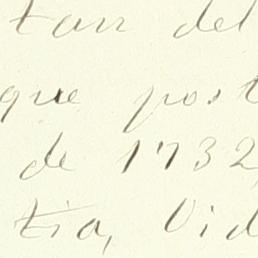 tan del
que post
de 1732
tia, Vid